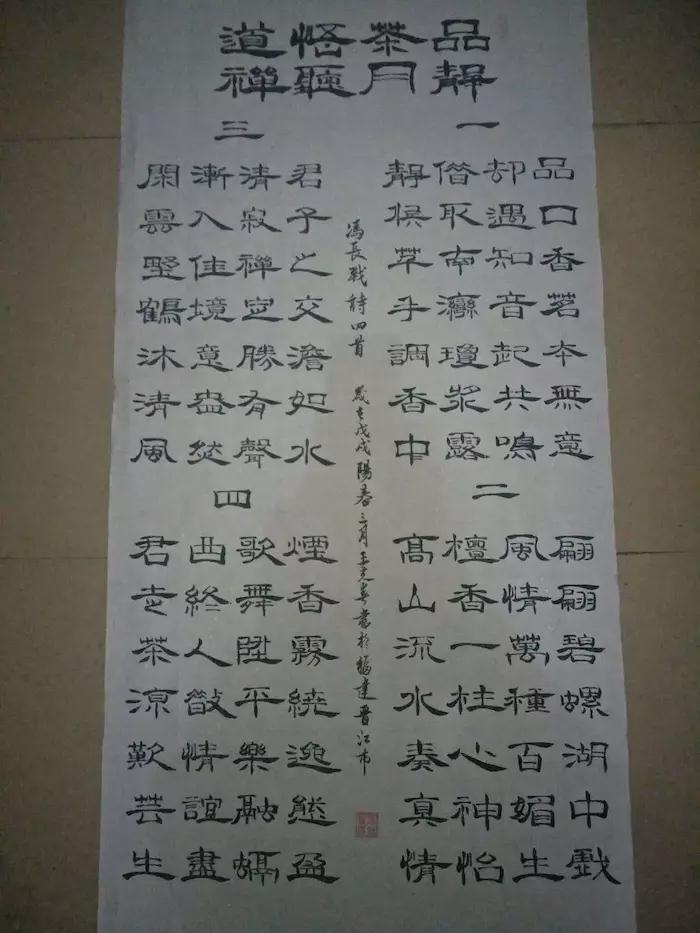 品茶悟道
靜月聽禪
一
品口香茗本無意
却遇知音起共鳴
借取南灣瓊漿露
靜候手調香中
二
翩翩碧螺湖中戲
風情萬種百媚生
檀香一柱心神怡
高山流水奏真情
馮長戰詩四首 歲在戊戌陽春三月王春書於福建晉江市
三
君子之交澹如水
清寂禪定勝有聲
漸入佳境意盎然
閑雲野鶴沐清風
四
煙香霧繞逸態盈
歌舞陞平樂融融
曲終人散情誼盡
君走茶涼歎芸生